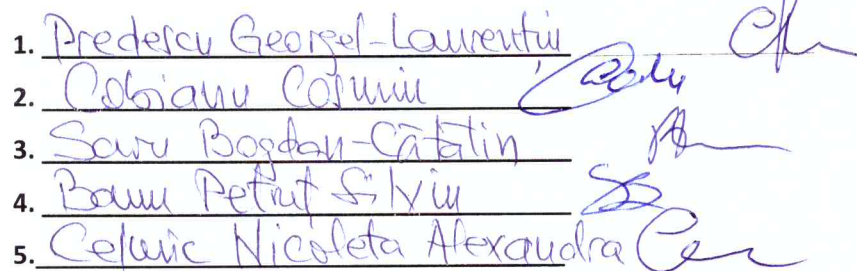 1. Predescu Georgel-Laurentiu
2. Cobianu Cosmin
3. Savu Bogdan-Cătălin
4. Banu Petruț Silviu
5. Nicoleta Alexandra